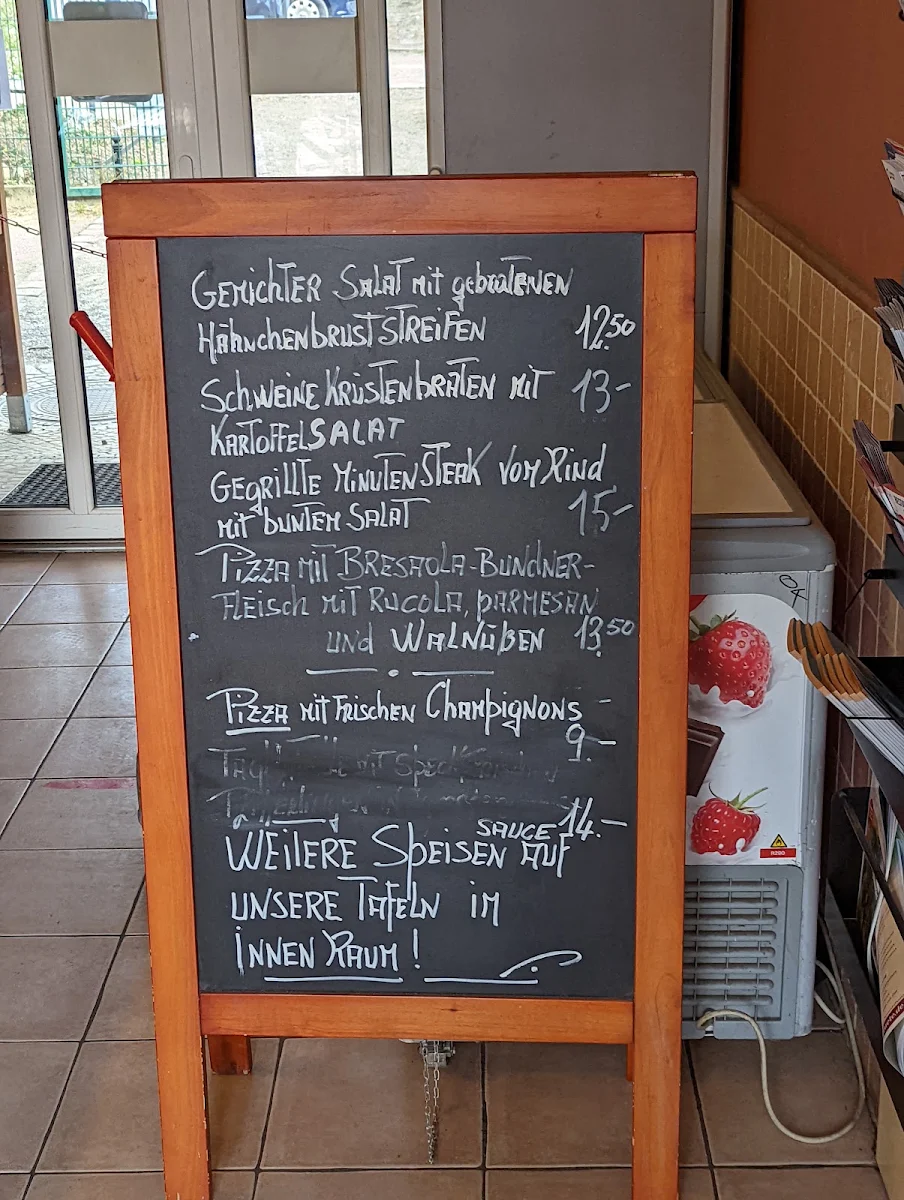 GEMiCHTER SALAT mit gebratenen
HÄHNCHENBRUSTSTREIFEN 12.50
SCHWEINE KRÜSTENBRATEN MIT 13-
KARTOFFELSALAT
GEGRILLTE MINUTENSTEAK VOM RIND
MIT BUNTEM SALAT 15-
PIZZA MIT BRESAOLA-BÜNDNER-
FLEISCH MIT RUCOLA, PARMESAN
UND WALNÜßEN 13.50
PIZZA MIT FRISCHEN CHAMPIGNONS -
9.-
MIT SPECK
SAUCE 14.-
WEILERE SPEISEN AUF
UNSERE TAFELN IM
INNEN RAUM!
OK
R290